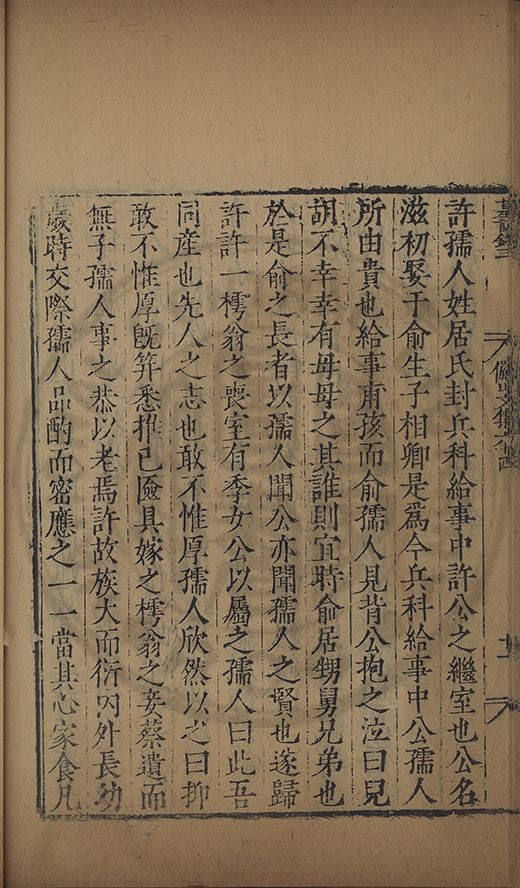 許孺人姓居氏封兵科給事中許公之繼室也公名
滋初娶于俞生子相卿是爲今兵科給事中公孺人
所由貴也給事甫孩而俞孺人見背公抱之泣曰兒
胡不幸幸有母母之其誰則宜時俞居甥舅兄弟也
於是俞之長者以孺人聞公亦聞孺人之賢也遂歸
許許一樗翁之喪室有季女公以屬之孺人曰此吾
同産也先人之志也敢不惟厚孺人欣然以之曰抑
敢不惟厚旣筓悉推已匳具嫁之樗翁之妾蔡遺而
無子孺人事之恭以老焉許故族大而衍内外長幼
歲時交際孺人品酌而密應之一一當其心家食凡